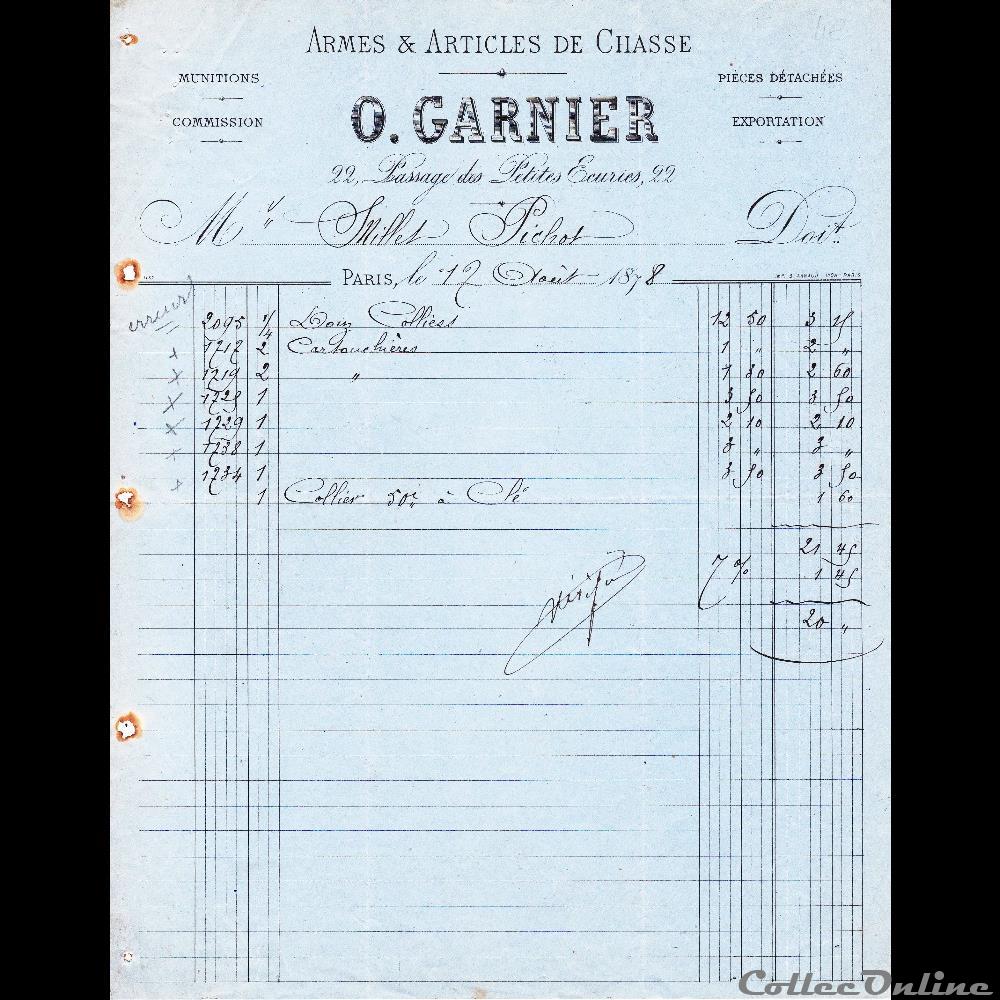 ARMES & ARTICLES DE CHASSE
MUNITIONS
PIÈCES DÉTACHÉES
O. GARNIER
COMMISSION
EXPORTATION
22, Passage des Petites Ecuries, 22
M Millet Pichot Doit
PARIS, le 17 Août 1878
erreur
2095 1/4 Douz Colliers 12 50 3 15
1717 2 Cartouchières 1 " 2 "
1719 2 " 1 30 2 60
1725 1 3 50 3 50
1729 1 2 10 2 10
1738 1 3 " 3 "
1734 1 3 50 3 50
1 Collier 50c à Clé 1 60
21 45
7 % 1 45
20 "
vérifié
CollecOnline